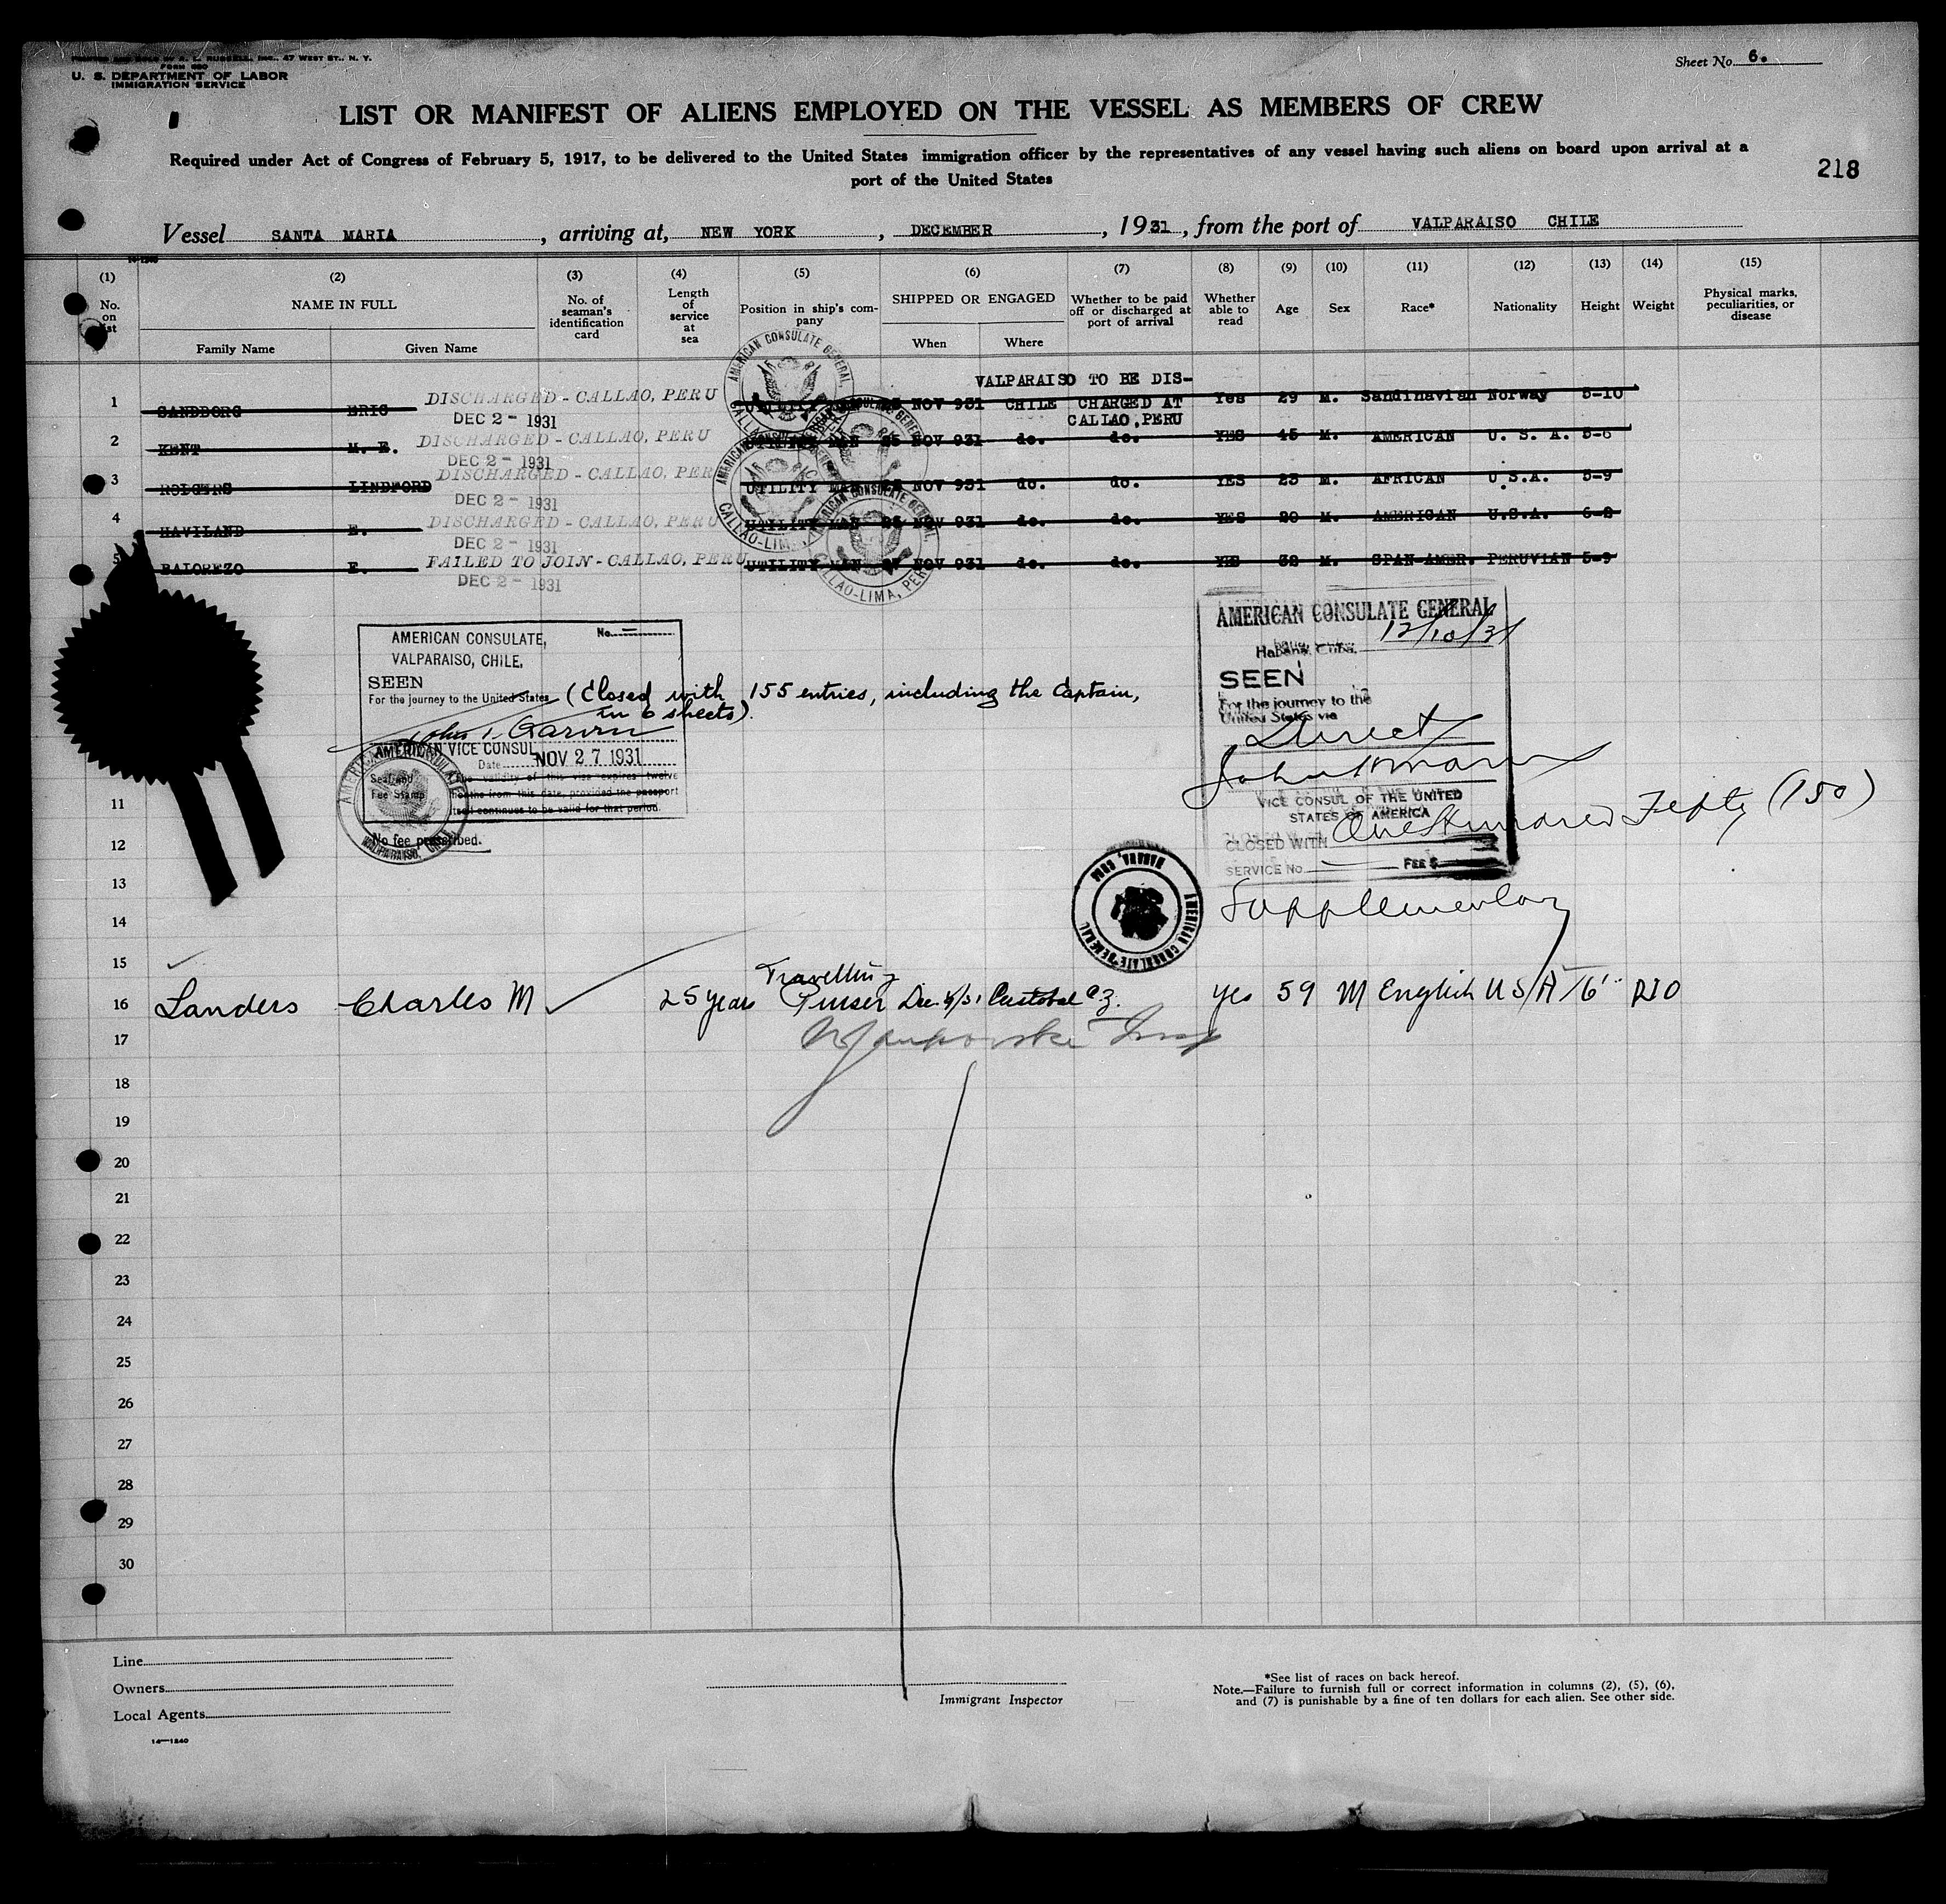 U. S. DEPARTMENT OF LABOR
IMMIGRATION SERVICE
Sheet No. 6.
LIST OR MANIFEST OF ALIENS EMPLOYED ON THE VESSEL AS MEMBERS OF CREW
Required under Act of Congress of February 5, 1917, to be delivered to the United States immigration officer by the representatives of any vessel having such aliens on board upon arrival at a
port of the United States
218
Vessel SANTA MARIA, arriving at, NEW YORK, DECEMBER, 1931, from the port of VALPARAISO CHILE
(1) (2) (3) (4) (5) (6) (7) (8) (9) (10) (11) (12) (13) (14) (15)
No. on list
NAME IN FULL
Family Name Given Name
No. of seaman's identification card
Length of service at sea
Position in ship's company
SHIPPED OR ENGAGED
When Where
Whether to be paid off or discharged at port of arrival
Whether able to read
Age
Sex
Race*
Nationality
Height
Weight
Physical marks, peculiarities, or disease
VALPARAISO TO BE DIS-
1 SANDBORG ERIC DISCHARGED - CALLAO, PERU UTILITY MAN NOV 931 CHILE CHARGED AT Yes 29 M. Sandinavian Norway 5-10
DEC 2 - 1931 CALLAO, PERU
2 KENT M. E. DISCHARGED - CALLAO, PERU MAN 25 NOV 931 do. do. YES 45 M. AMERICAN U. S. A. 5-6
DEC 2 - 1931
3 RODGERS LINDFORD DISCHARGED - CALLAO, PER UTILITY MAN NOV 931 do. do. YES 23 M. AFRICAN U.S.A. 5-9
DEC 2 - 1931
4 HAVILAND E. DISCHARGED - CALLAO, PERU UTILITY MAN NOV 931 do. do. YES 20 M. AMERICAN U.S.A.
DEC 2 - 1931
5 E. FAILED TO JOIN - CALLAO, PERU UTILITY MAN NOV 931 do. do. YES 32 M. SPAN-AMER. PERUVIAN 5-9
DEC 2 - 1931
AMERICAN CONSULATE GENERAL,
CALLAO-LIMA, PERU
AMERICAN CONSULATE, No. —
VALPARAISO, CHILE.
SEEN
For the journey to the United States (Closed with 155 entries, including the Captain,
in 6 sheets).
John T. Garvin
AMERICAN VICE CONSUL
Date NOV 27 1931
Seal and Fee Stamp
The validity of this visa expires twelve
months from this date, provided the passport
itself continues to be valid for that period.
No fee prescribed.
AMERICAN CONSULATE GENERAL
Habana, Cuba. 12/10/31
SEEN
For the journey to the
United States via
Direct
VICE CONSUL OF THE UNITED
STATES OF AMERICA
CLOSED WITH One Hundred Fifty (150)
SERVICE No. FEE $
Supplementary
AMERICAN CONSULATE GENERAL HABANA, CUBA
11
12
13
14
15
Travelling
16 Landers Charles M 25 years Purser Dec Cristobal C.Z. yes 59 M English USA 6'
17
18
19
20
21
22
23
24
25
26
27
28
29
30
Line
Owners
Local Agents
14—1240
Immigrant Inspector
*See list of races on back hereof.
Note.—Failure to furnish full or correct information in columns (2), (5), (6),
and (7) is punishable by a fine of ten dollars for each alien. See other side.